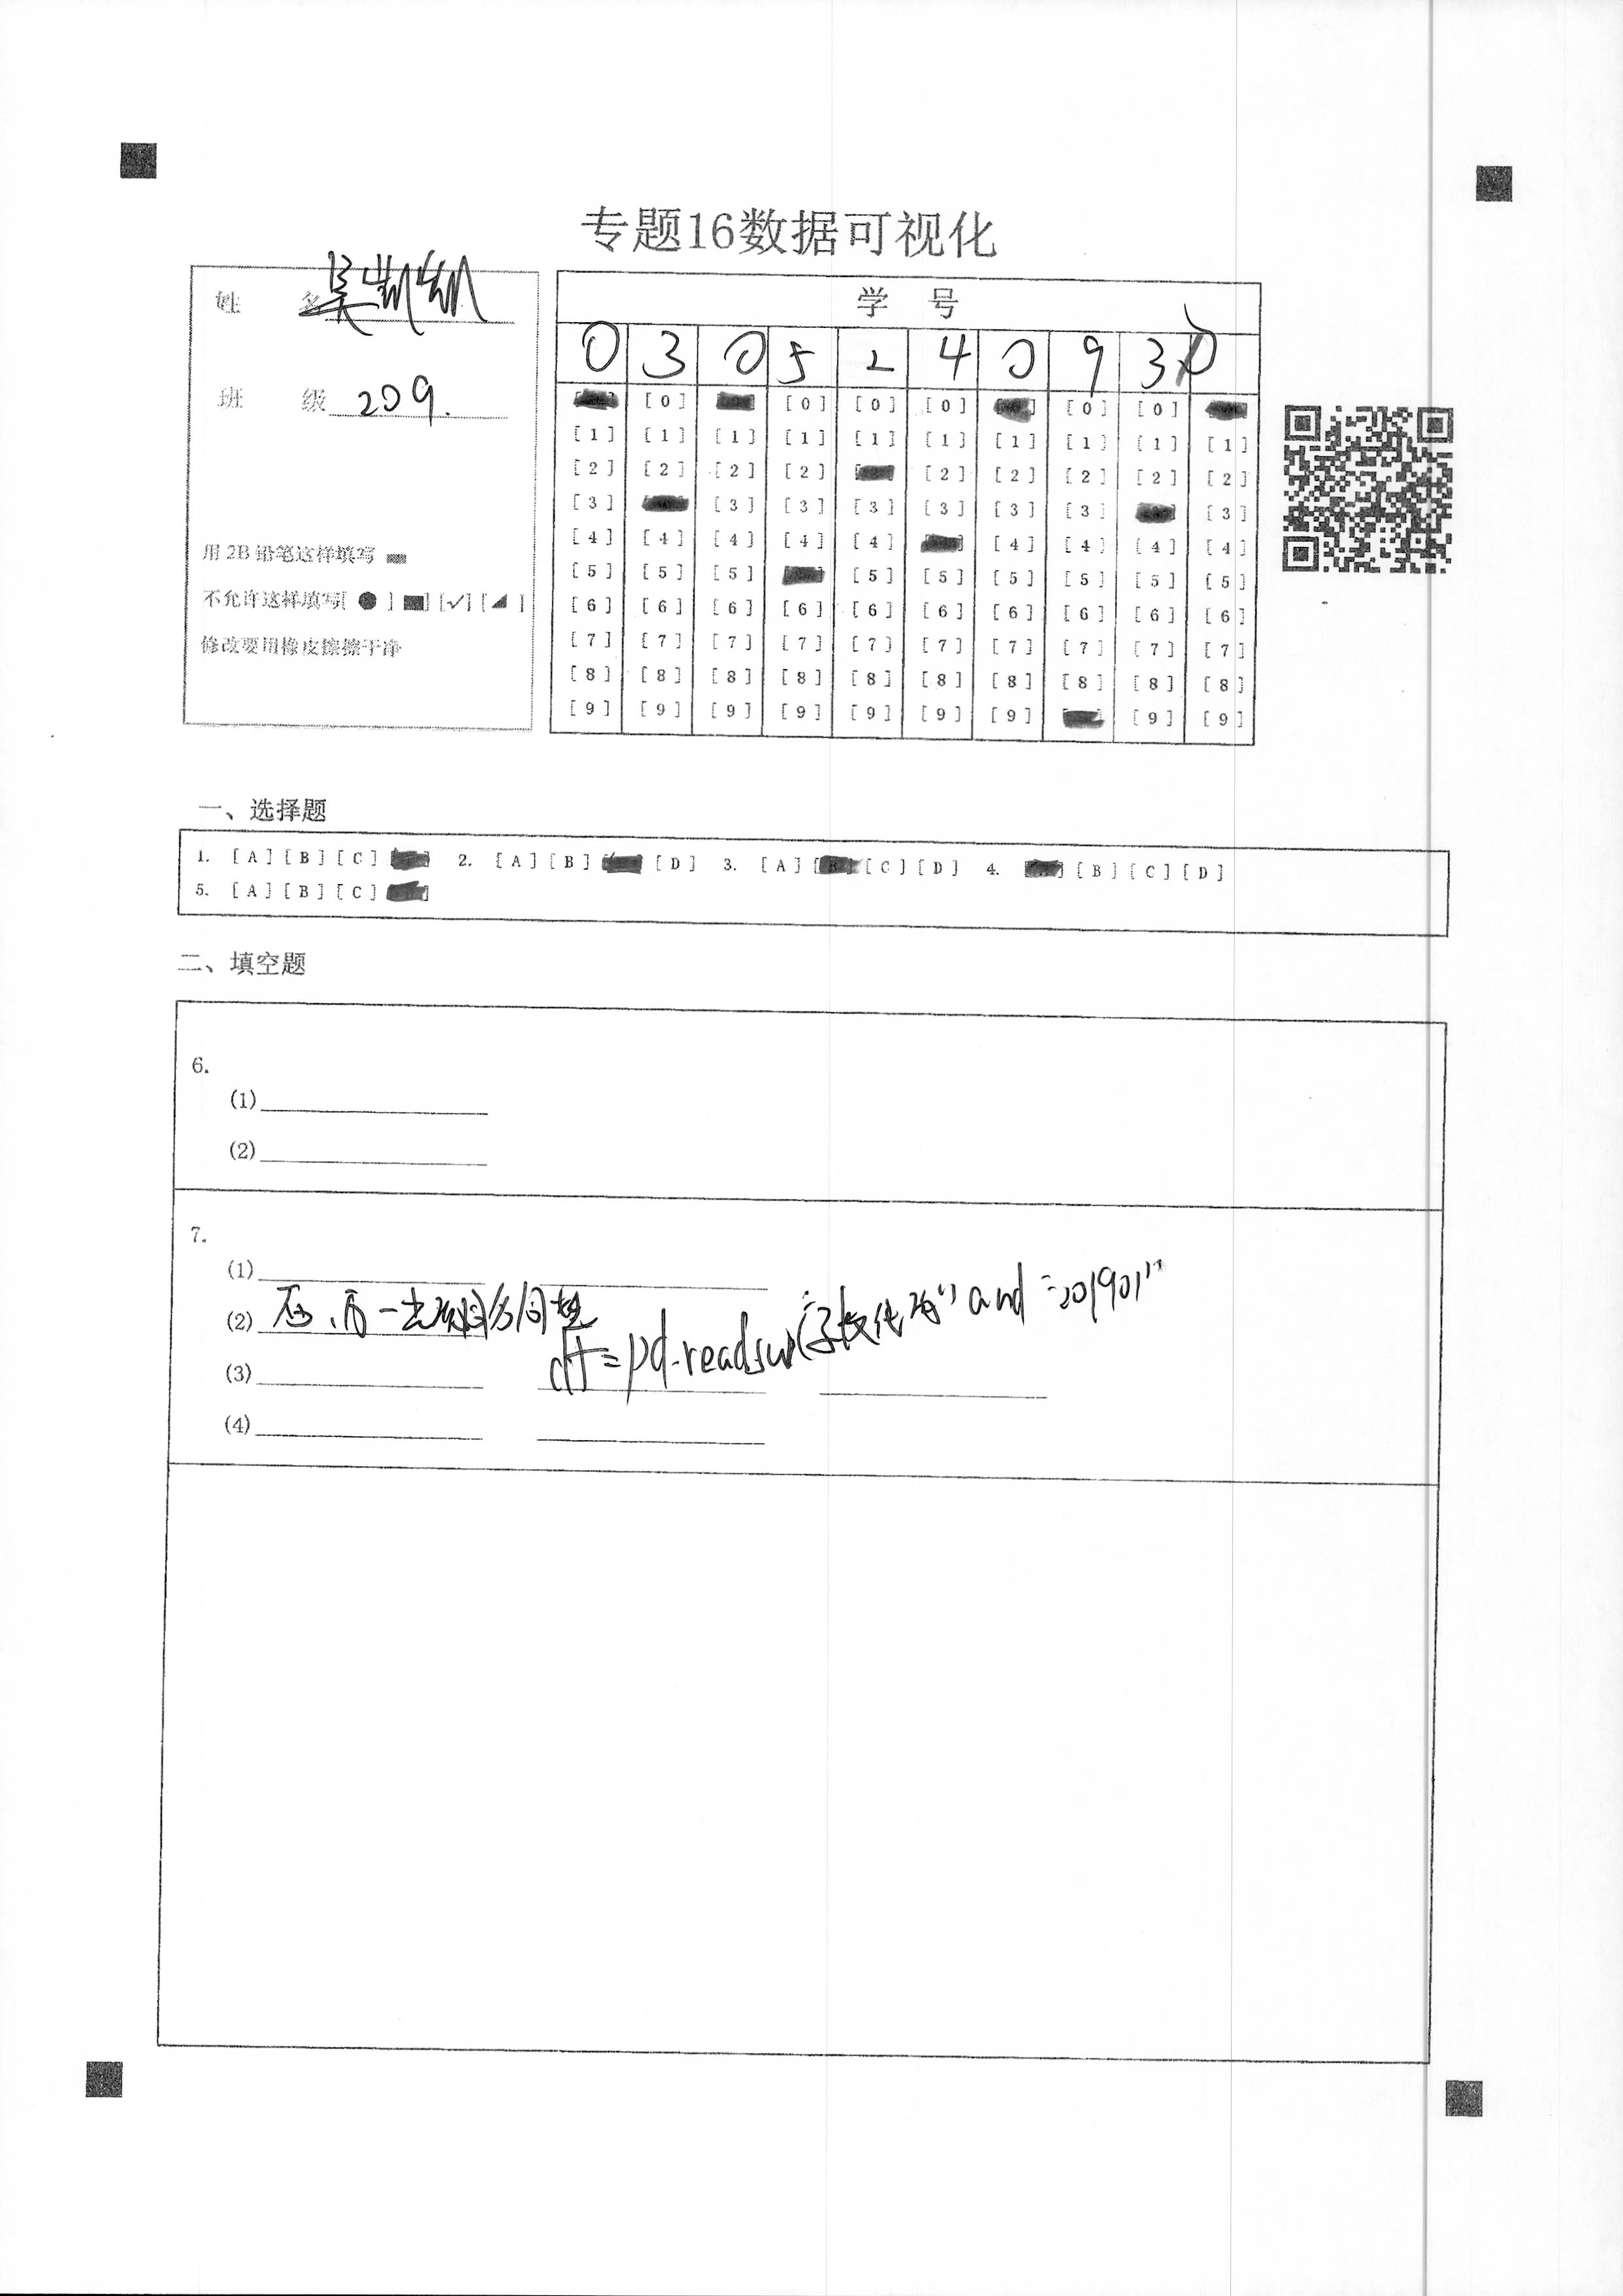 专题16数据可视化
姓 名 吴凯凯
班 级 209.
用 2B 铅笔这样填写
不允许这样填写[ ● ] [■] [✓] [◢ ]
修改要用橡皮擦擦干净
学 号
0 3 0 5 2 4 0 9 3 0
[0] [0] [0] [0] [0] [0]
[1] [1] [1] [1] [1] [1] [1] [1] [1] [1]
[2] [2] [2] [2] [2] [2] [2] [2] [2]
[3] [3] [3] [3] [3] [3] [3] [3]
[4] [4] [4] [4] [4] [4] [4] [4] [4]
[5] [5] [5] [5] [5] [5] [5] [5] [5]
[6] [6] [6] [6] [6] [6] [6] [6] [6] [6]
[7] [7] [7] [7] [7] [7] [7] [7] [7] [7]
[8] [8] [8] [8] [8] [8] [8] [8] [8] [8]
[9] [9] [9] [9] [9] [9] [9] [9] [9]
一、选择题
1. [A] [B] [C] 2. [A] [B] [D] 3. [A] [C] [D] 4. [B] [C] [D]
5. [A] [B] [C]
二、填空题
6.
(1)
(2)
7.
(1)
(2)
(3) df=pd.read and 201901"
(4)